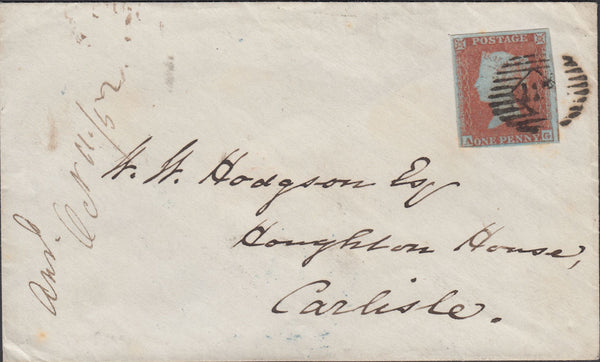 POSTAGE
A ONE PENNY G
W. W. Hodgson Esq
Houghton House,
Carlisle.
Oct 11/52